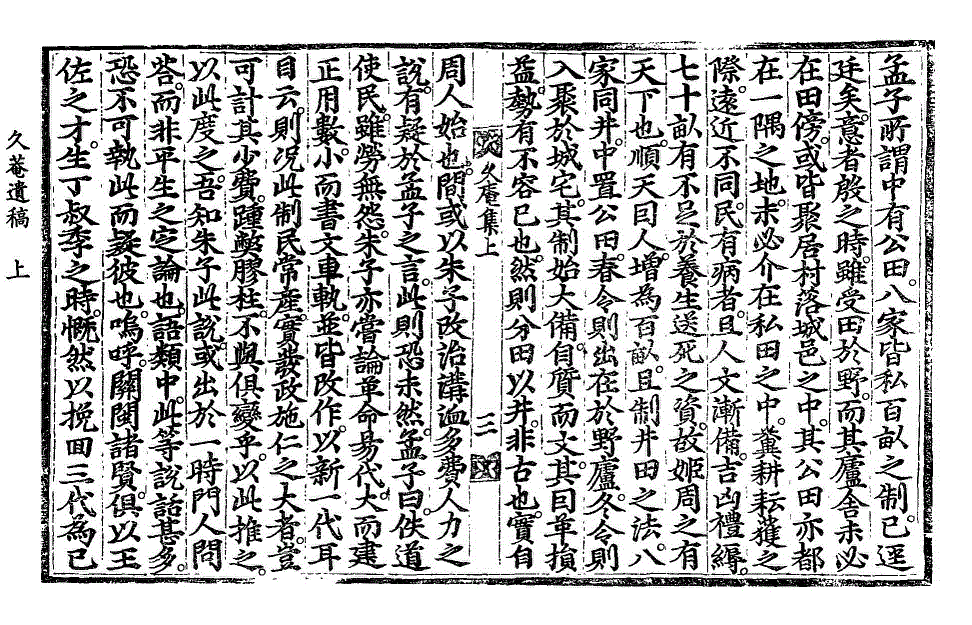 孟子所謂中有公田。八家皆私百畝之制。已逕
廷矣。意者殷之時。雖受田於野。而其廬舍未必
在田傍。或皆聚居村落城邑之中。其公田亦都
在一隅之地。未必介在私田之中。糞耕耘穫之
際。遠近不同。民有病者。且人文漸備。吉凶禮縟。
七十畝有不足於養生送死之資。故姬周之有
天下也。順天因人。增為百畝。且制井田之法。八
家同井。中置公田。春令則出在於野廬。冬令則
入聚於城宅。其制始大備。自質而文。其因革損
益。勢有不容已也。然則分田以井。非古也。實自
久庵集上 三
周人始也。間或以朱子改治溝洫多費人力之
說。有疑於孟子之言。此則恐未然。孟子曰。佚道
使民。雖勞無怨。朱子亦嘗論革命易代。大而建
正用數。小而書文車軌。並皆改作。以新一代耳
目云。則况此制民常產。實發政施仁之大者。豈
可計其少費。踵敝膠柱。不與俱變乎。以此推之。
以此度之。吾知朱子此說。或出於一時門人問
荅。而非平生之定論也。語類中。此等說話甚多。
恐不可執此而疑彼也。嗚呼。關閩諸賢。俱以王
佐之才。生丁叔季之時。慨然以挽回三代為已
久菴遺稿 上